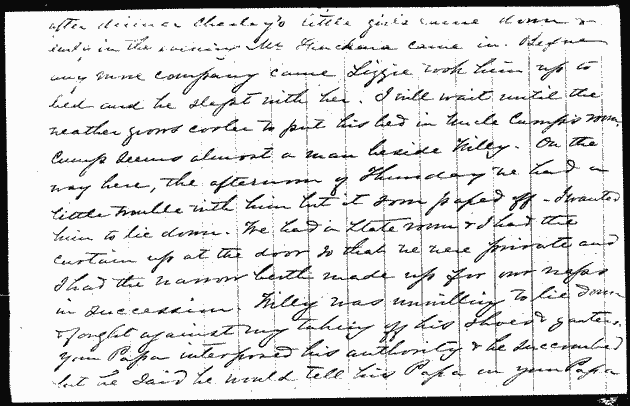 after dinner Chesley's little girls came down &
early in the evening Mr came in. Before
any more company came Lizzie took him up to
bed and he slept with her. I will wait until the
weather grows cooler to put his bed in Uncle Cump's room.
Cump seems almost a man beside Willy. On the
way here, the afternoon of Thursday we had a
little trouble with him but it soon passed off - I wanted
him to lie down. We had a State room & I had the
curtain up at the door so that we were private and
I had the narrow berth made up for our naps
in succession. Willy was unwilling to lie down
& fought against my taking off his shoes & garters.
Your Papa interposed his authority & he succumbed
but he said he would tell his Papa on your Papa